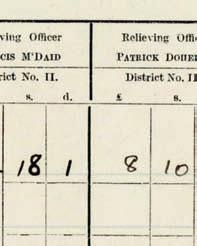 ving Officer Relieving Offi
CIS M'DAID PATRICK DOHE
rict No. II. District No. II
s. d. £ s.
18 1 8 10